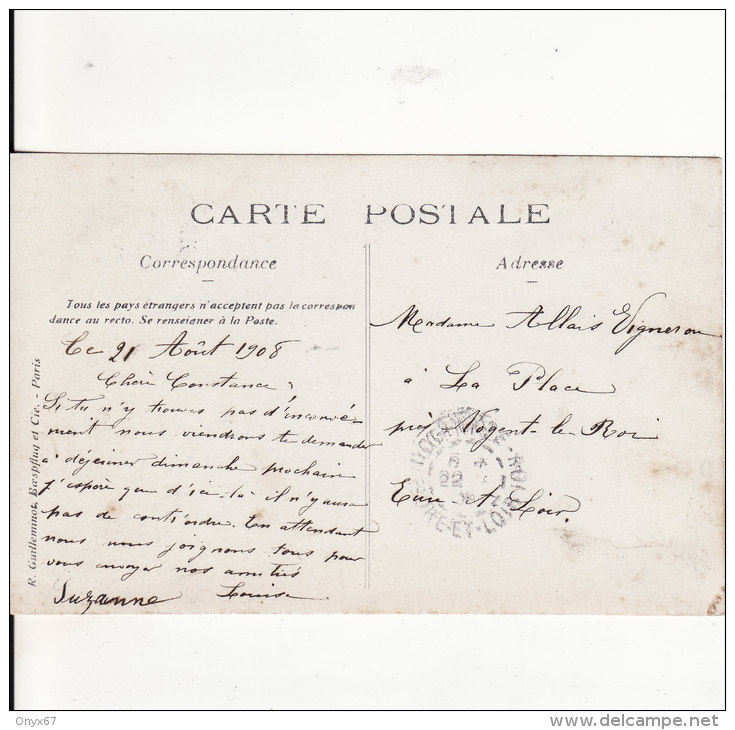 CARTE POSTALE
Correspondance
Tous les pays étrangers n'acceptent pas la correspon
dance au recto. Se renseigner à la Poste.
Ce 21 Août 1908
Chère Constance,
Si tu n'y trouves pas d'inconvé-
nient nous viendrons te demander
à déjeuner dimanche prochain
j'espère que d'ici-là il n'y aura
pas de contr'ordre. En attendant
nous nous joignons tous pour
vous envoyer nos amitiés
Suzanne Louise
R. Guilleminot, Bœspflug et Cie. - Paris
Adresse
Madame Allais Vigneron
à La Place
près Nogent-le-Roi
Eure-et-Loir.
EURE-ET-LOIR
Onyx67
delcampe.net